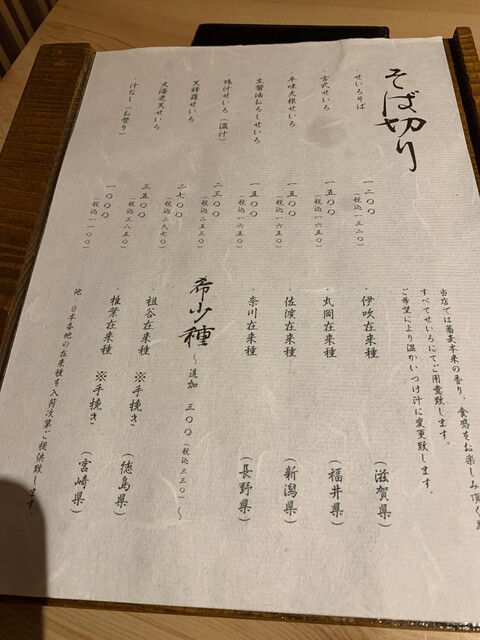 そば切り
・せいろそば 一二〇〇
(税込一三二〇)
・古式せいろ 一五〇〇
(税込一六五〇)
辛味大根せいろ 一五〇〇
(税込一六五〇)
生醤油おろしせいろ 一五〇〇
(税込一六五〇)
鴨汁せいろ(温汁) 二三〇〇
(税込二五三〇)
天婦羅せいろ 二七〇〇
(税込二九七〇)
大海老天せいろ 三五〇〇
(税込三八五〇)
・汁なし(お替り) 一〇〇〇
(税込一一〇〇)
当店では蕎麦本来の香り、食感をお楽しみ頂く
すべてせいろにてご用意致します。
ご希望により温かいつけ汁に変更致します。
・伊吹在来種 (滋賀県)
・丸岡在来種 (福井県)
・佐渡在来種 (新潟県)
・奈川在来種 (長野県)
希少種 ~追加 三〇〇(税込三三〇)~
・祖谷在来種 ※手挽き (徳島県)
・椎葉在来種 ※手挽き (宮崎県)
他、日本各地の在来種を入荷次第ご提供致します。